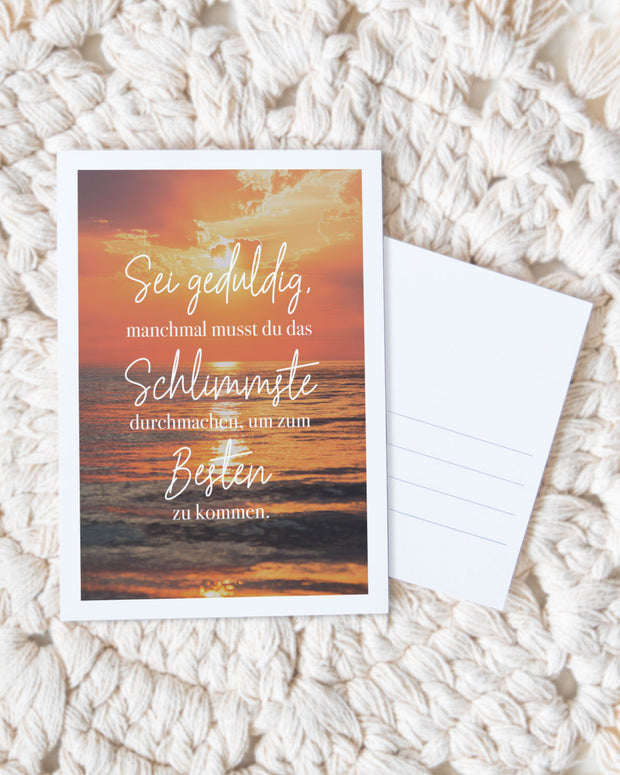 Sei geduldig,
manchmal musst du das
Schlimmste
durchmachen, um zum
Besten
zu kommen.